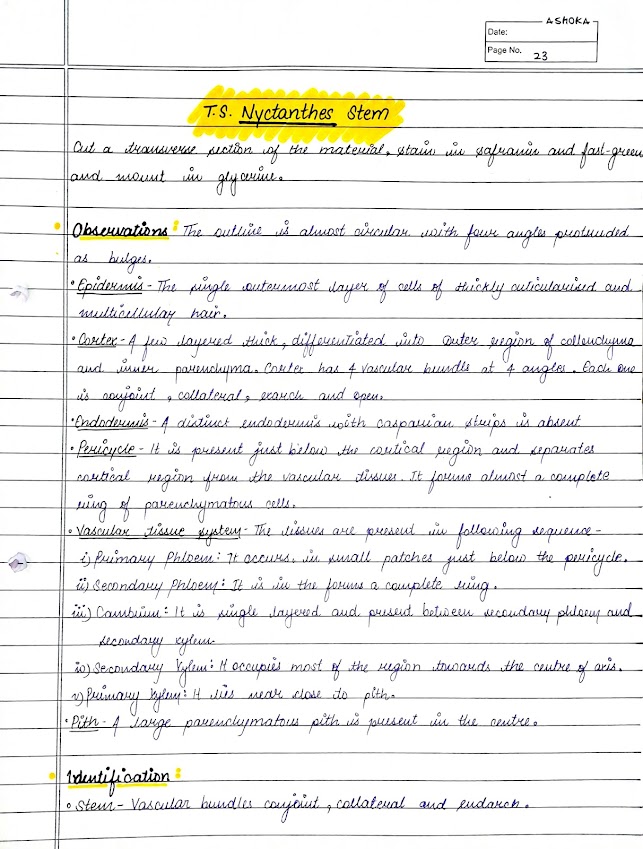 ASHOKA
Date:
Page No. 23
T.S. Nyctanthes Stem
Cut a transverse section of the material, stain in safranin and fast-green
and mount in glycerine.
Observations: The outline is almost circular with four angles protruded
as bulges.
• Epidermis - The single outermost layer of cells of thickly cuticularised and
multicellular hair.
• Cortex - A few layered thick, differentiated into outer region of collenchyma
and inner parenchyma. Cortex has 4 vascular bundle at 4 angles. Each one
is conjoint, collateral, exarch and open.
• Endodermis - A distinct endodermis with casparian strips is absent
• Pericycle - It is present just below the cortical region and separates
cortical region from the vascular tissues. It forms almost a complete
ring of parenchymatous cells.
• Vascular tissue system - The tissues are present in following sequence -
i) Primary Phloem: It occurs in small patches just below the pericycle.
ii) Secondary Phloem: It is in the forms a complete ring.
iii) Cambium: It is single layered and present between secondary phloem and
secondary xylem
iv) Secondary Xylem: It occupies most of the region towards the centre of axis.
v) Primary Xylem: It lies near close to pith.
• Pith - A large parenchymatous pith is present in the centre.
Identification:
• Stem - Vascular bundles conjoint, collateral and endarch.